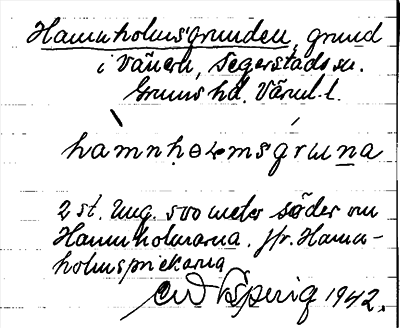 Hamnholmsgrunden, grund
i Vänern, Segerstads sn.
Grums hd. Värml. l.
hamnhɵlmsgruna
2 st. Ung. 500 meter söder om
Hamnholmarna. Jfr. Hamn-
holmsprickarna
1942.